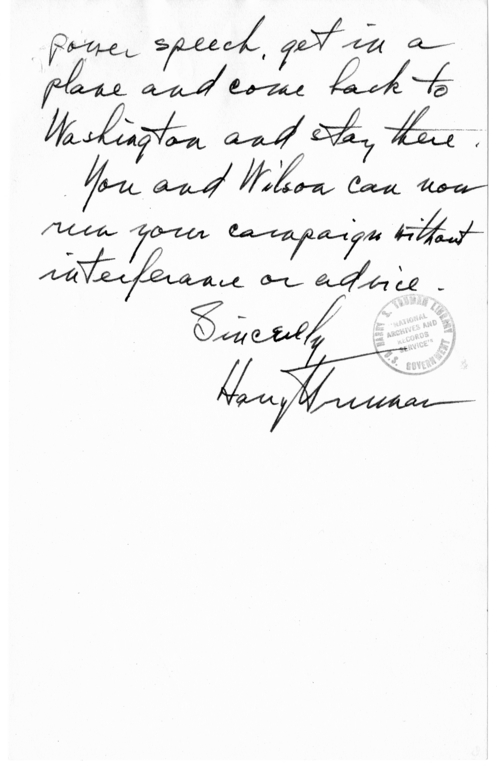 power speech, get in a
plane and come back to
Washington and stay there.
You and Wilson can now
run your campaign without
interferance or advice.
Sincerely
Harry Truman
HARRY S. TRUMAN LIBRARY
"NATIONAL
ARCHIVES AND
RECORDS
SERVICE"
U.S. GOVERNMENT